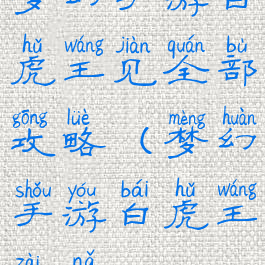 梦幻手游白
hǔ wáng jiàn quán bù
虎王见全部
gōng lüè mèng huàn
攻略(梦幻
shǒu yóu bái hǔ wáng
手游白虎王
zài nǎ